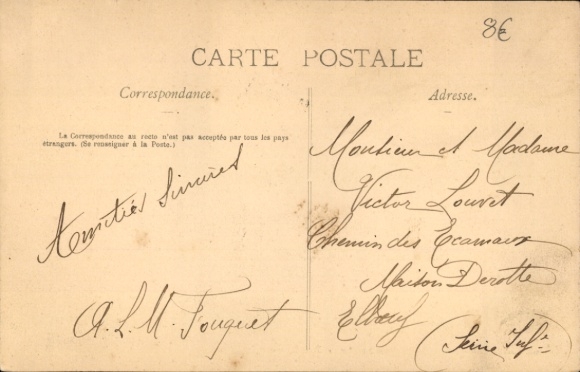 8€
CARTE POSTALE
Correspondance.
Adresse.
La Correspondance au recto n'est pas acceptée par tous les pays
étrangers. (Se renseigner à la Poste.)
Amitiés Sincères
A. L. M. Fouquet
Monsieur et Madame
Victor Louvet
Chemin des Ecameaux
Maison Derotte
Elbeuf
(Seine Infre)